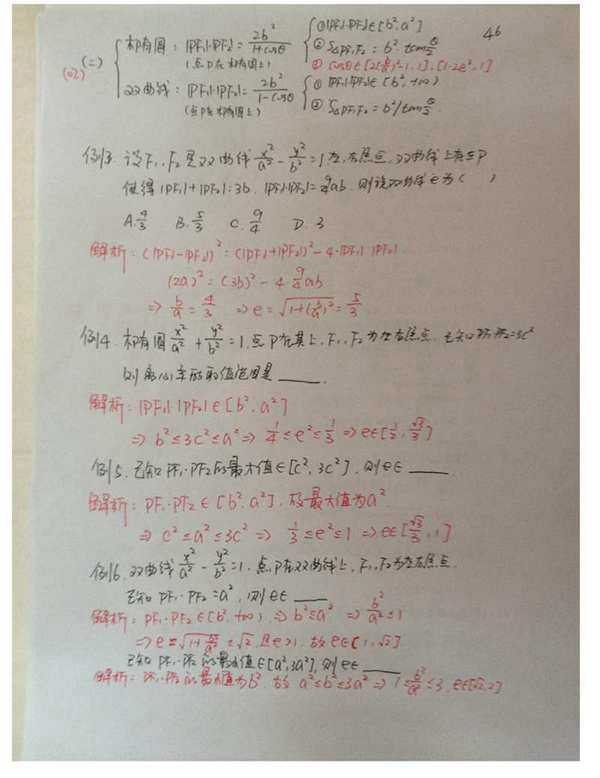 46
(二) 椭圆:|PF₁|·|PF₂|=2b²/(1+cosθ) ①|PF₁|·|PF₂|∈[b²,a²]
(点P在椭圆上) ②S△PF₁F₂=b²·tanθ/2
双曲线:|PF₁|·|PF₂|=2b²/(1-cosθ) ①|PF₁|·|PF₂|∈[b²,+∞)
(点P在椭圆上) ②S△PF₁F₂=b²/tanθ/2
例13.设F₁,F₂是双曲线x²/a²-y²/b²=1左,右焦点,双曲线上存在P
使得|PF₁|+|PF₂|=3b,|PF₁|·|PF₂|=9/4ab,则该双曲线e为( )
A.4/3 B.5/3 C.9/4 D.3
解析:(|PF₁|-|PF₂|)²=(|PF₁|+|PF₂|)²-4·|PF₁|·|PF₂|
(2a)²=(3b)²-4·9/4ab
⇒b/a=4/3 ⇒e=√(1+(b/a)²)=5/3
例14.椭圆x²/a²+y²/b²=1,点P在其上,F₁,F₂为左右焦点,已知PF₁·PF₂=3c²
则离心率的取值范围是____.
解析:|PF₁|·|PF₂|∈[b²,a²]
⇒b²≤3c²≤a²⇒1/4≤e²≤1/3⇒e∈[1/2,√3/3]
例15.已知PF₁·PF₂的最大值∈[c²,3c²],则e∈____.
解析:PF₁·PF₂∈[b²,a²],故最大值为a²
⇒c²≤a²≤3c²⇒1/3≤e²≤1⇒e∈[√3/3,1]
例16.双曲线x²/a²-y²/b²=1,点P在双曲线上,F₁,F₂为左右焦点.
已知PF₁·PF₂=a²,则e∈____
解析:PF₁·PF₂∈[b²,+∞)⇒b²≤a²⇒b²/a²≤1
⇒e=√(1+b²/a²)≤√2,且e>1,故e∈(1,√2]
已知PF₁·PF₂的最小值∈[a²,3a²],则e∈____
解析:PF₁·PF₂的最小值为b²,故a²≤b²≤3a²⇒1≤b²/a²≤3,e∈[√2,2]